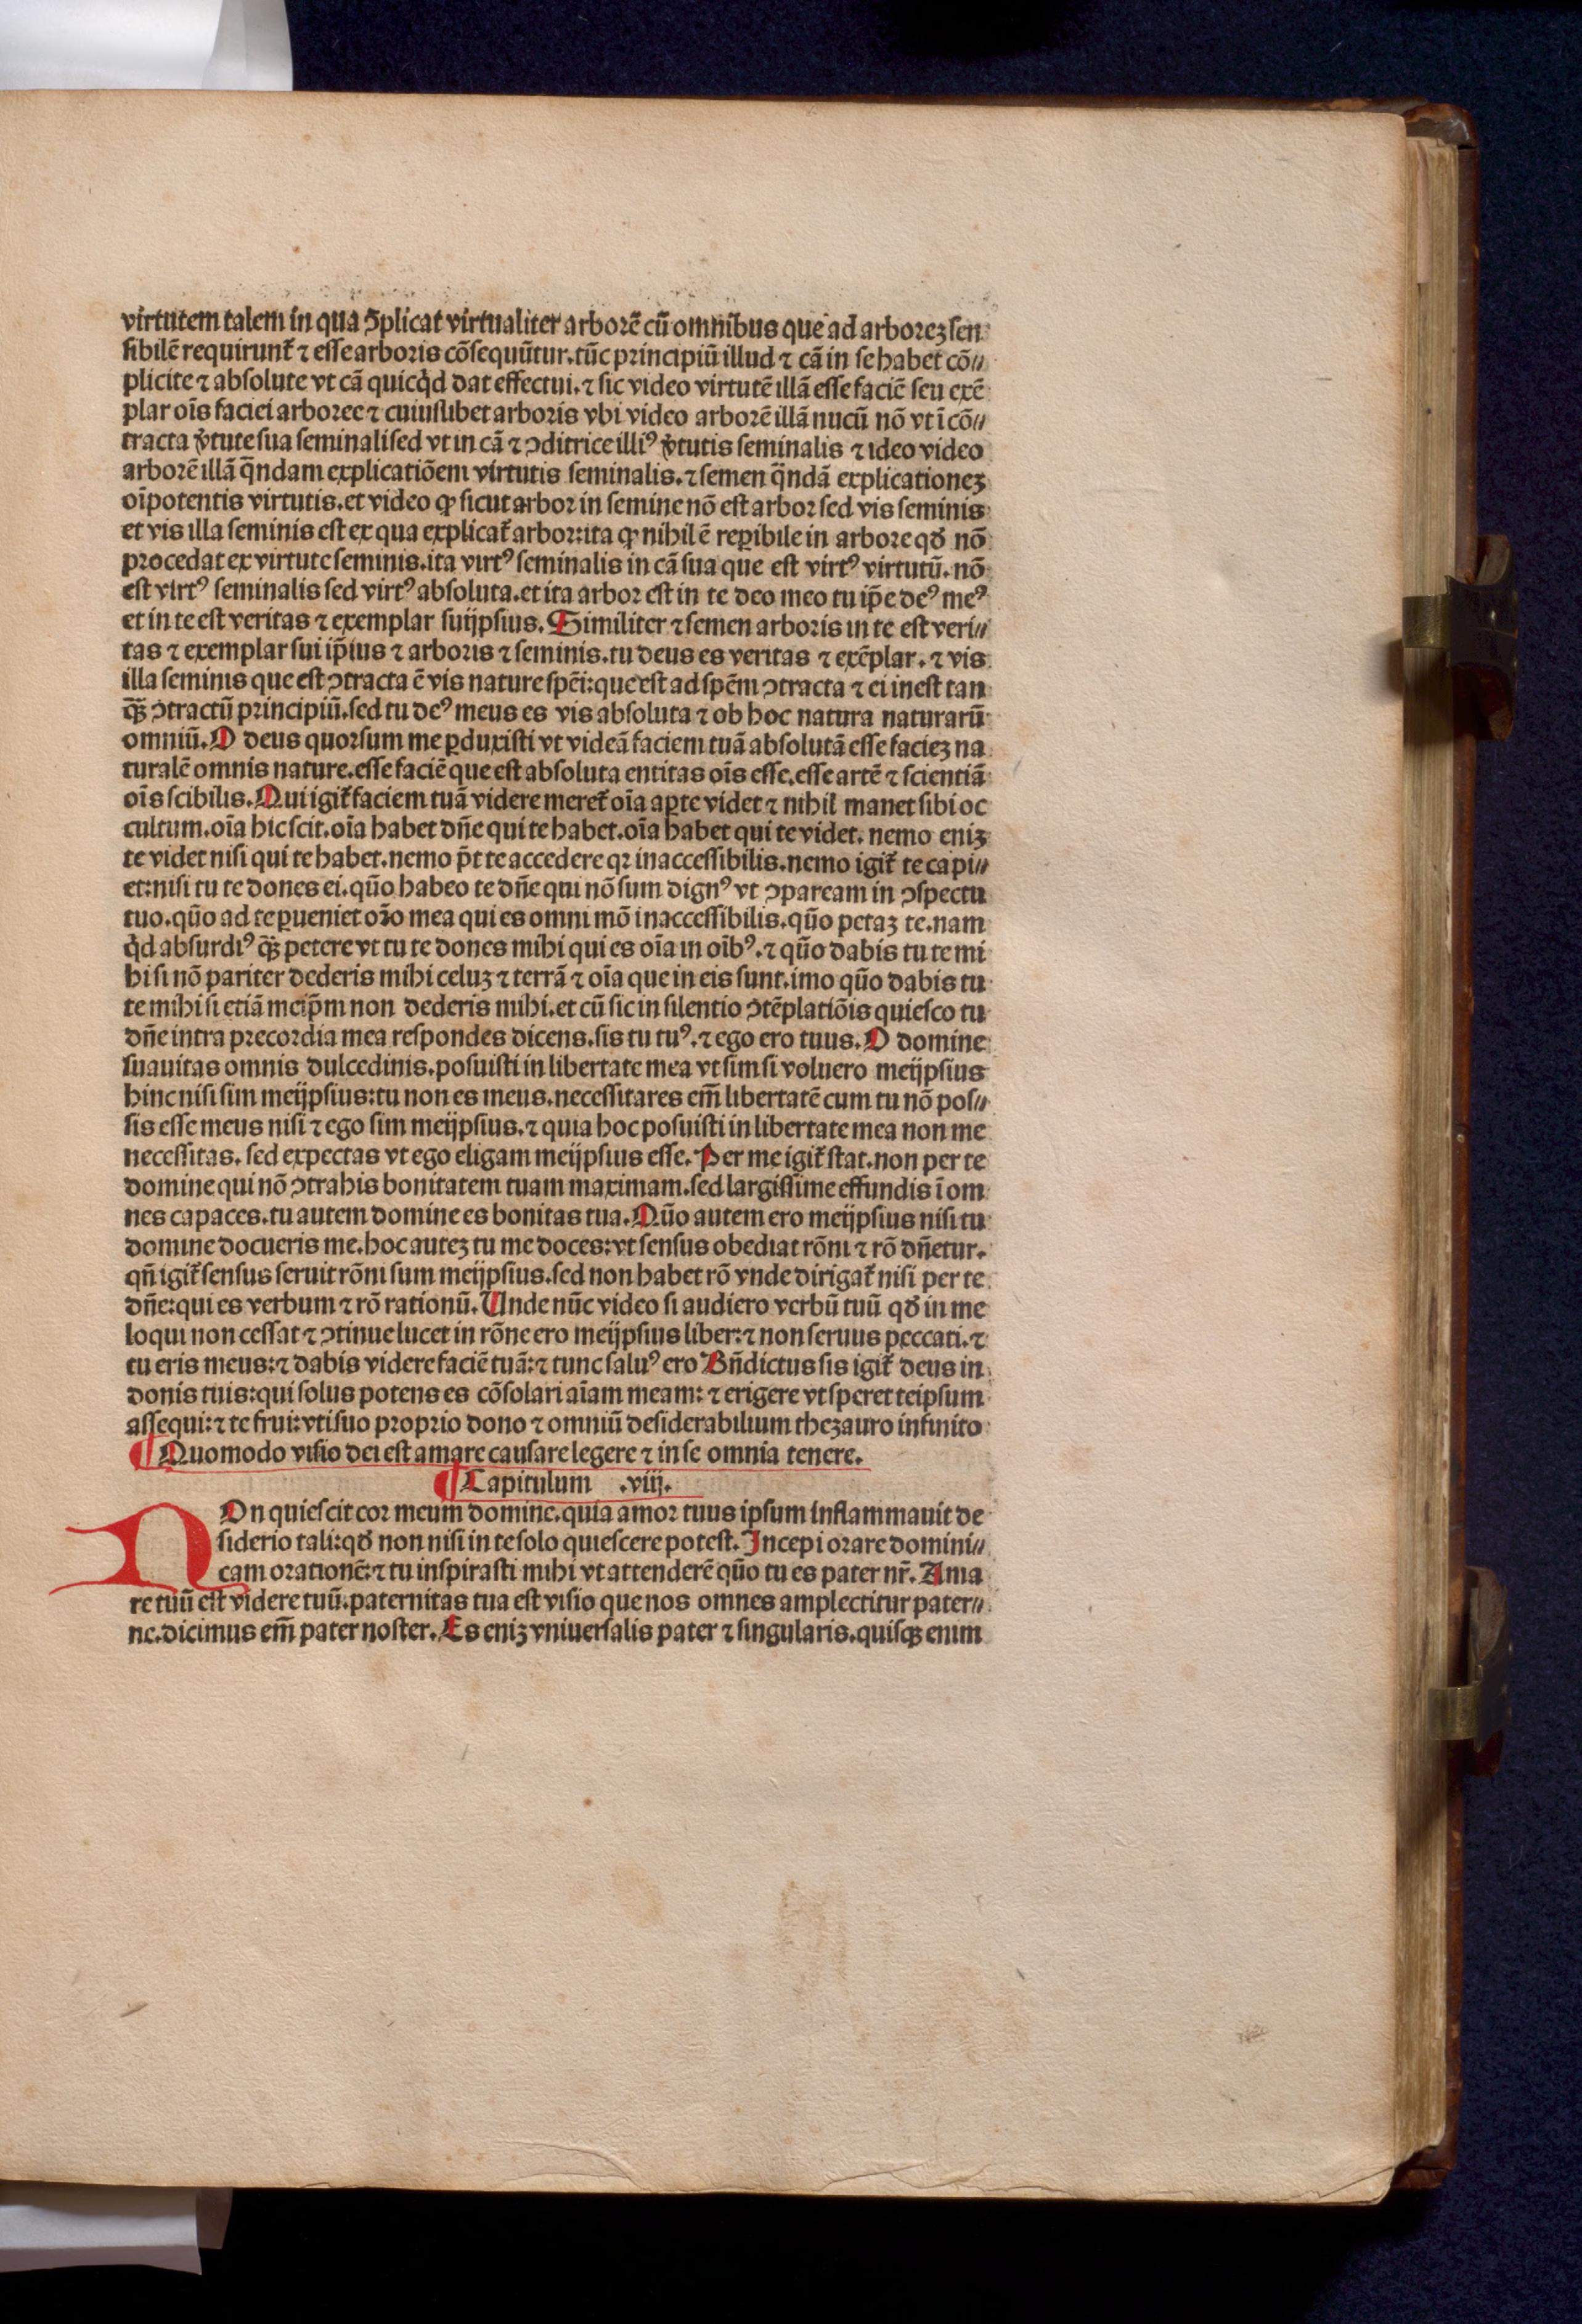 virtutem talem in qua ↄplicat virtualiter arborē cū omnibus que ad arboreȝ sen
sibilē requirunt᷑ ⁊ esse arboris cōsequūtur. tūc principiū illud ⁊ cā in se habet cō⸗
plicite ⁊ absolute vt cā quicq̇d dat effectui. ⁊ sic video virtutē illā esse faciē seu exē
plar oīs faciei arboree ⁊ cuiuslibet arboris vbi video arborē illā nucū nō vt ī cō⸗
tracta v̓tute sua seminali sed vt in cā ⁊ ↄditrice illiꝰ v̓tutis seminalis ⁊ ideo video
arborē illā q̄ndam explicatiōem virtutis seminalis. ⁊ semen q̄ndā explicationeȝ
oīpotentis virtutis. et video ꝙ sicut arbor in semine nō est arbor sed vis seminis
et vis illa seminis est ex qua explicat᷑ arbor: ita ꝙ nihil ē reꝑibile in arbore qđ nō
procedat ex virtute seminis. ita virtꝰ seminalis in cā sua que est virtꝰ virtutū. nō
est virtꝰ seminalis sed virtꝰ absoluta. et ita arbor est in te deo meo tu ip̄e deꝰ meꝰ
et in te est veritas ⁊ exemplar suijpsius. Similiter ⁊ semen arboris in te est veri⸗
tas ⁊ exemplar sui ip̄ius ⁊ arboris ⁊ seminis. tu deus es veritas ⁊ exēplar. ⁊ vis
illa seminis que est ↄtracta ē vis nature spēi: que est ad spēm ↄtracta ⁊ ei inest tan
q̄ȝ ↄtractū principiū. sed tu deꝰ meus es vis absoluta ⁊ ob hoc natura naturarū
omniū. O deus quorsum me ꝑduxisti vt videā faciem tuā absolutā esse facieȝ na
turalē omnis nature. esse faciē que est absoluta entitas oīs esse. esse artē ⁊ scientiā
oīs scibilis. Qui igit᷑ faciem tuā videre meret᷑ oīa aꝑte videt ⁊ nihil manet sibi oc
cultum. oīa hic scit. oīa habet dn̄e qui te habet. oīa habet qui te videt. nemo eniȝ
te videt nisi qui te habet. nemo p̄t te accedere qꝛ inaccessibilis. nemo igit᷑ te capi⸗
et: nisi tu te dones ei. quō habeo te dn̄e qui nō sum dignꝰ vt ↄpaream in ↄspectu
tuo. quō ad te ꝑueniet or̄o mea qui es omni mō inaccessibilis. quō petaȝ te. nam
q̇d absurdiꝰ q̄ȝ petere vt tu te dones mihi qui es oīa in oībꝰ. ⁊ quō dabis tu te mi
hi si nō pariter dederis mihi celuȝ ⁊ terrā ⁊ oīa que in eis sunt. imo quō dabis tu
te mihi si etiā meip̄m non dederis mihi. et cū sic in silentio ↄtēplatiōis quiesco tu
dn̄e intra precordia mea respondes dicens. sis tu tuꝰ. ⁊ ego ero tuus. O domine
suauitas omnis dulcedinis. posuisti in libertate mea vt sim si voluero meijpsius
hinc nisi sim meijpsius: tu non es meus. necessitares em̄ libertatē cum tu nō pos⸗
sis esse meus nisi ⁊ ego sim meijpsius. ⁊ quia hoc posuisti in libertate mea non me
necessitas. sed expectas vt ego eligam meijpsius esse. Per me igit᷑ stat. non per te
domine qui nō ↄtrahis bonitatem tuam maximam. sed largissime effundis ī om
nes capaces. tu autem domine es bonitas tua. Quō autem ero meijpsius nisi tu
domine docueris me. hoc auteȝ tu me doces: vt sensus obediat rōni ⁊ rō dn̄etur.
qn̄ igit᷑ sensus seruit rōni sum meijpsius. sed non habet rō vnde dirigat᷑ nisi per te
dn̄e: qui es verbum ⁊ rō rationū. Unde nūc video si audiero verbū tuū qđ in me
loqui non cessat ⁊ ↄtinue lucet in rōne ero meijpsius liber: ⁊ non seruus peccati. ⁊
tu eris meus: ⁊ dabis videre faciē tuā: ⁊ tunc saluꝰ ero Bn̄dictus sis igit᷑ deus in
donis tuis: qui solus potens es cōsolari aīam meam: ⁊ erigere vt speret teipsum
assequi: ⁊ te frui: vti suo proprio dono ⁊ omniū desiderabilium thezauro infinito
¶ Quomodo visio dei est amare causare legere ⁊ in se omnia tenere.
¶ Capitulum .viij.
NOn quiescit cor meum domine. quia amor tuus ipsum inflammauit de
siderio tali: qđ non nisi in te solo quiescere potest. Incepi orare domini⸗
cam orationē: ⁊ tu inspirasti mihi vt attenderē quō tu es pater nr̄. Ama
re tuū est videre tuū. paternitas tua est visio que nos omnes amplectitur pater⸗
ne. dicimus em̄ pater noster. Es eniȝ vniuersalis pater ⁊ singularis. quisqȝ enim